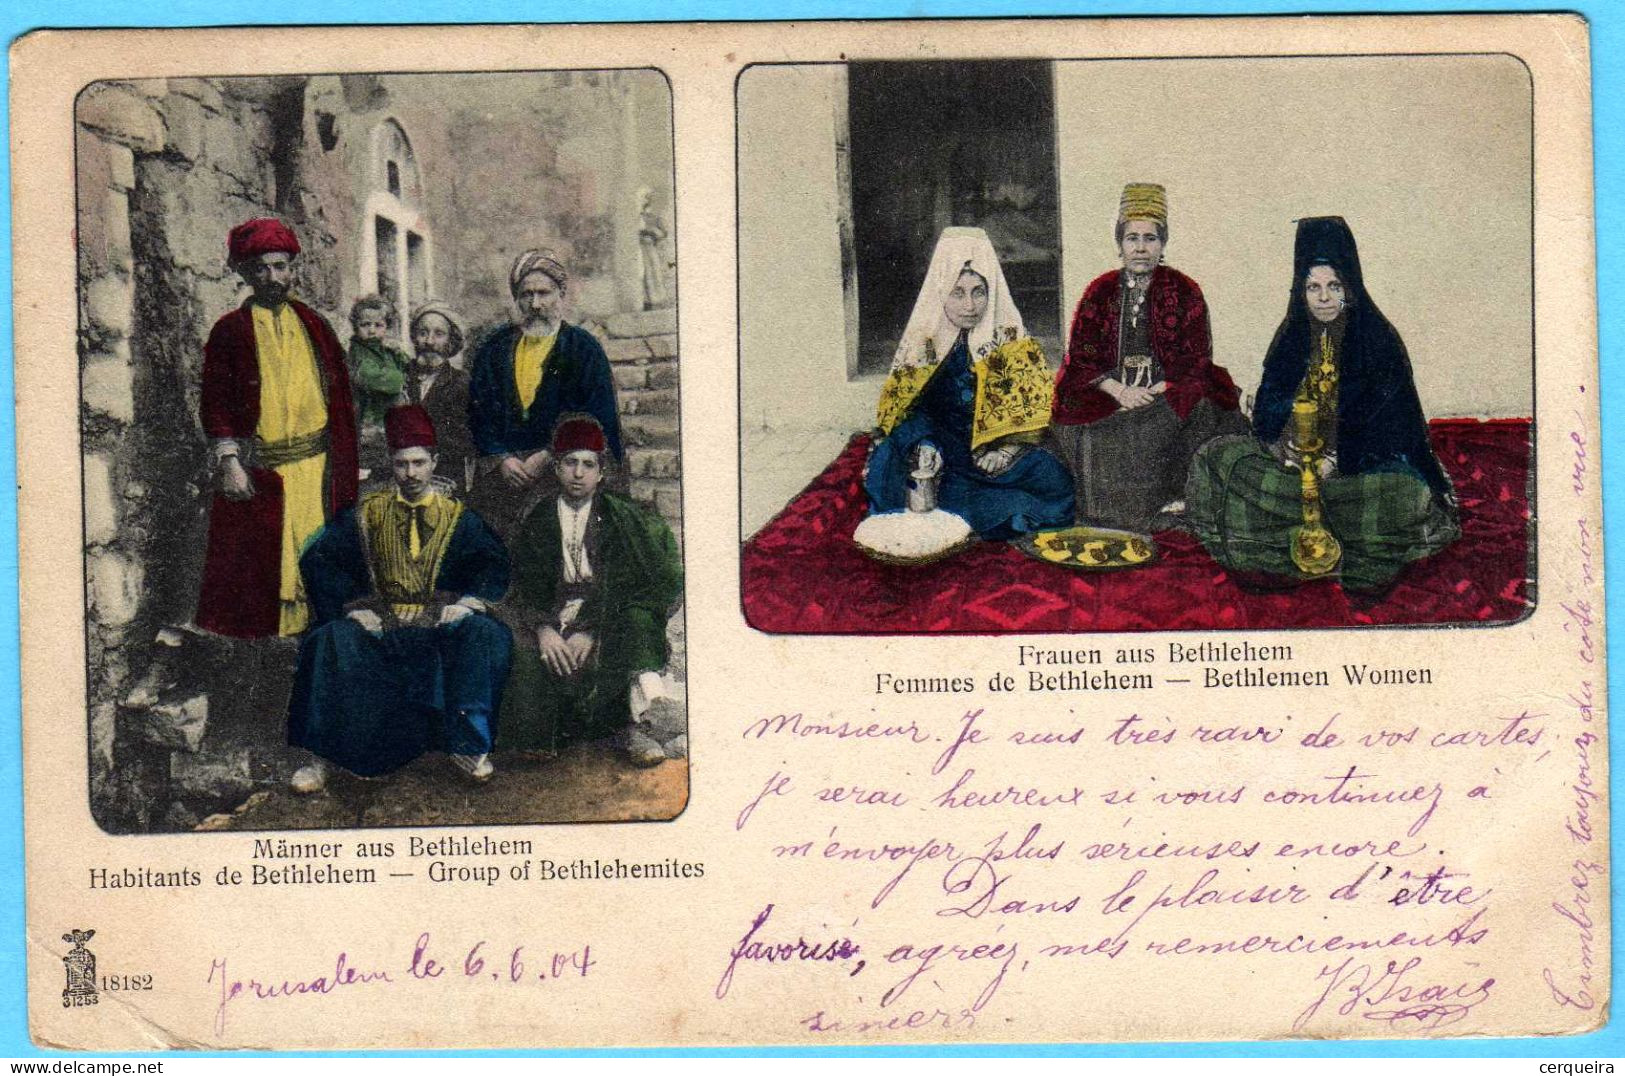 Männer aus Bethlehem
Habitants de Bethlehem — Group of Bethlehemites
Frauen aus Bethlehem
Femmes de Bethlehem — Bethlemen Women
Monsieur. Je suis très ravi de vos cartes;
je serai heureux si vous continuez à
m'envoyer plus sérieuses encore.
Dans le plaisir d'être
favorisé, agréez, mes remerciements
Jerusalem le 6.6.04
18182
31253
Timbrez toujours du côté non vue.
cerqueira